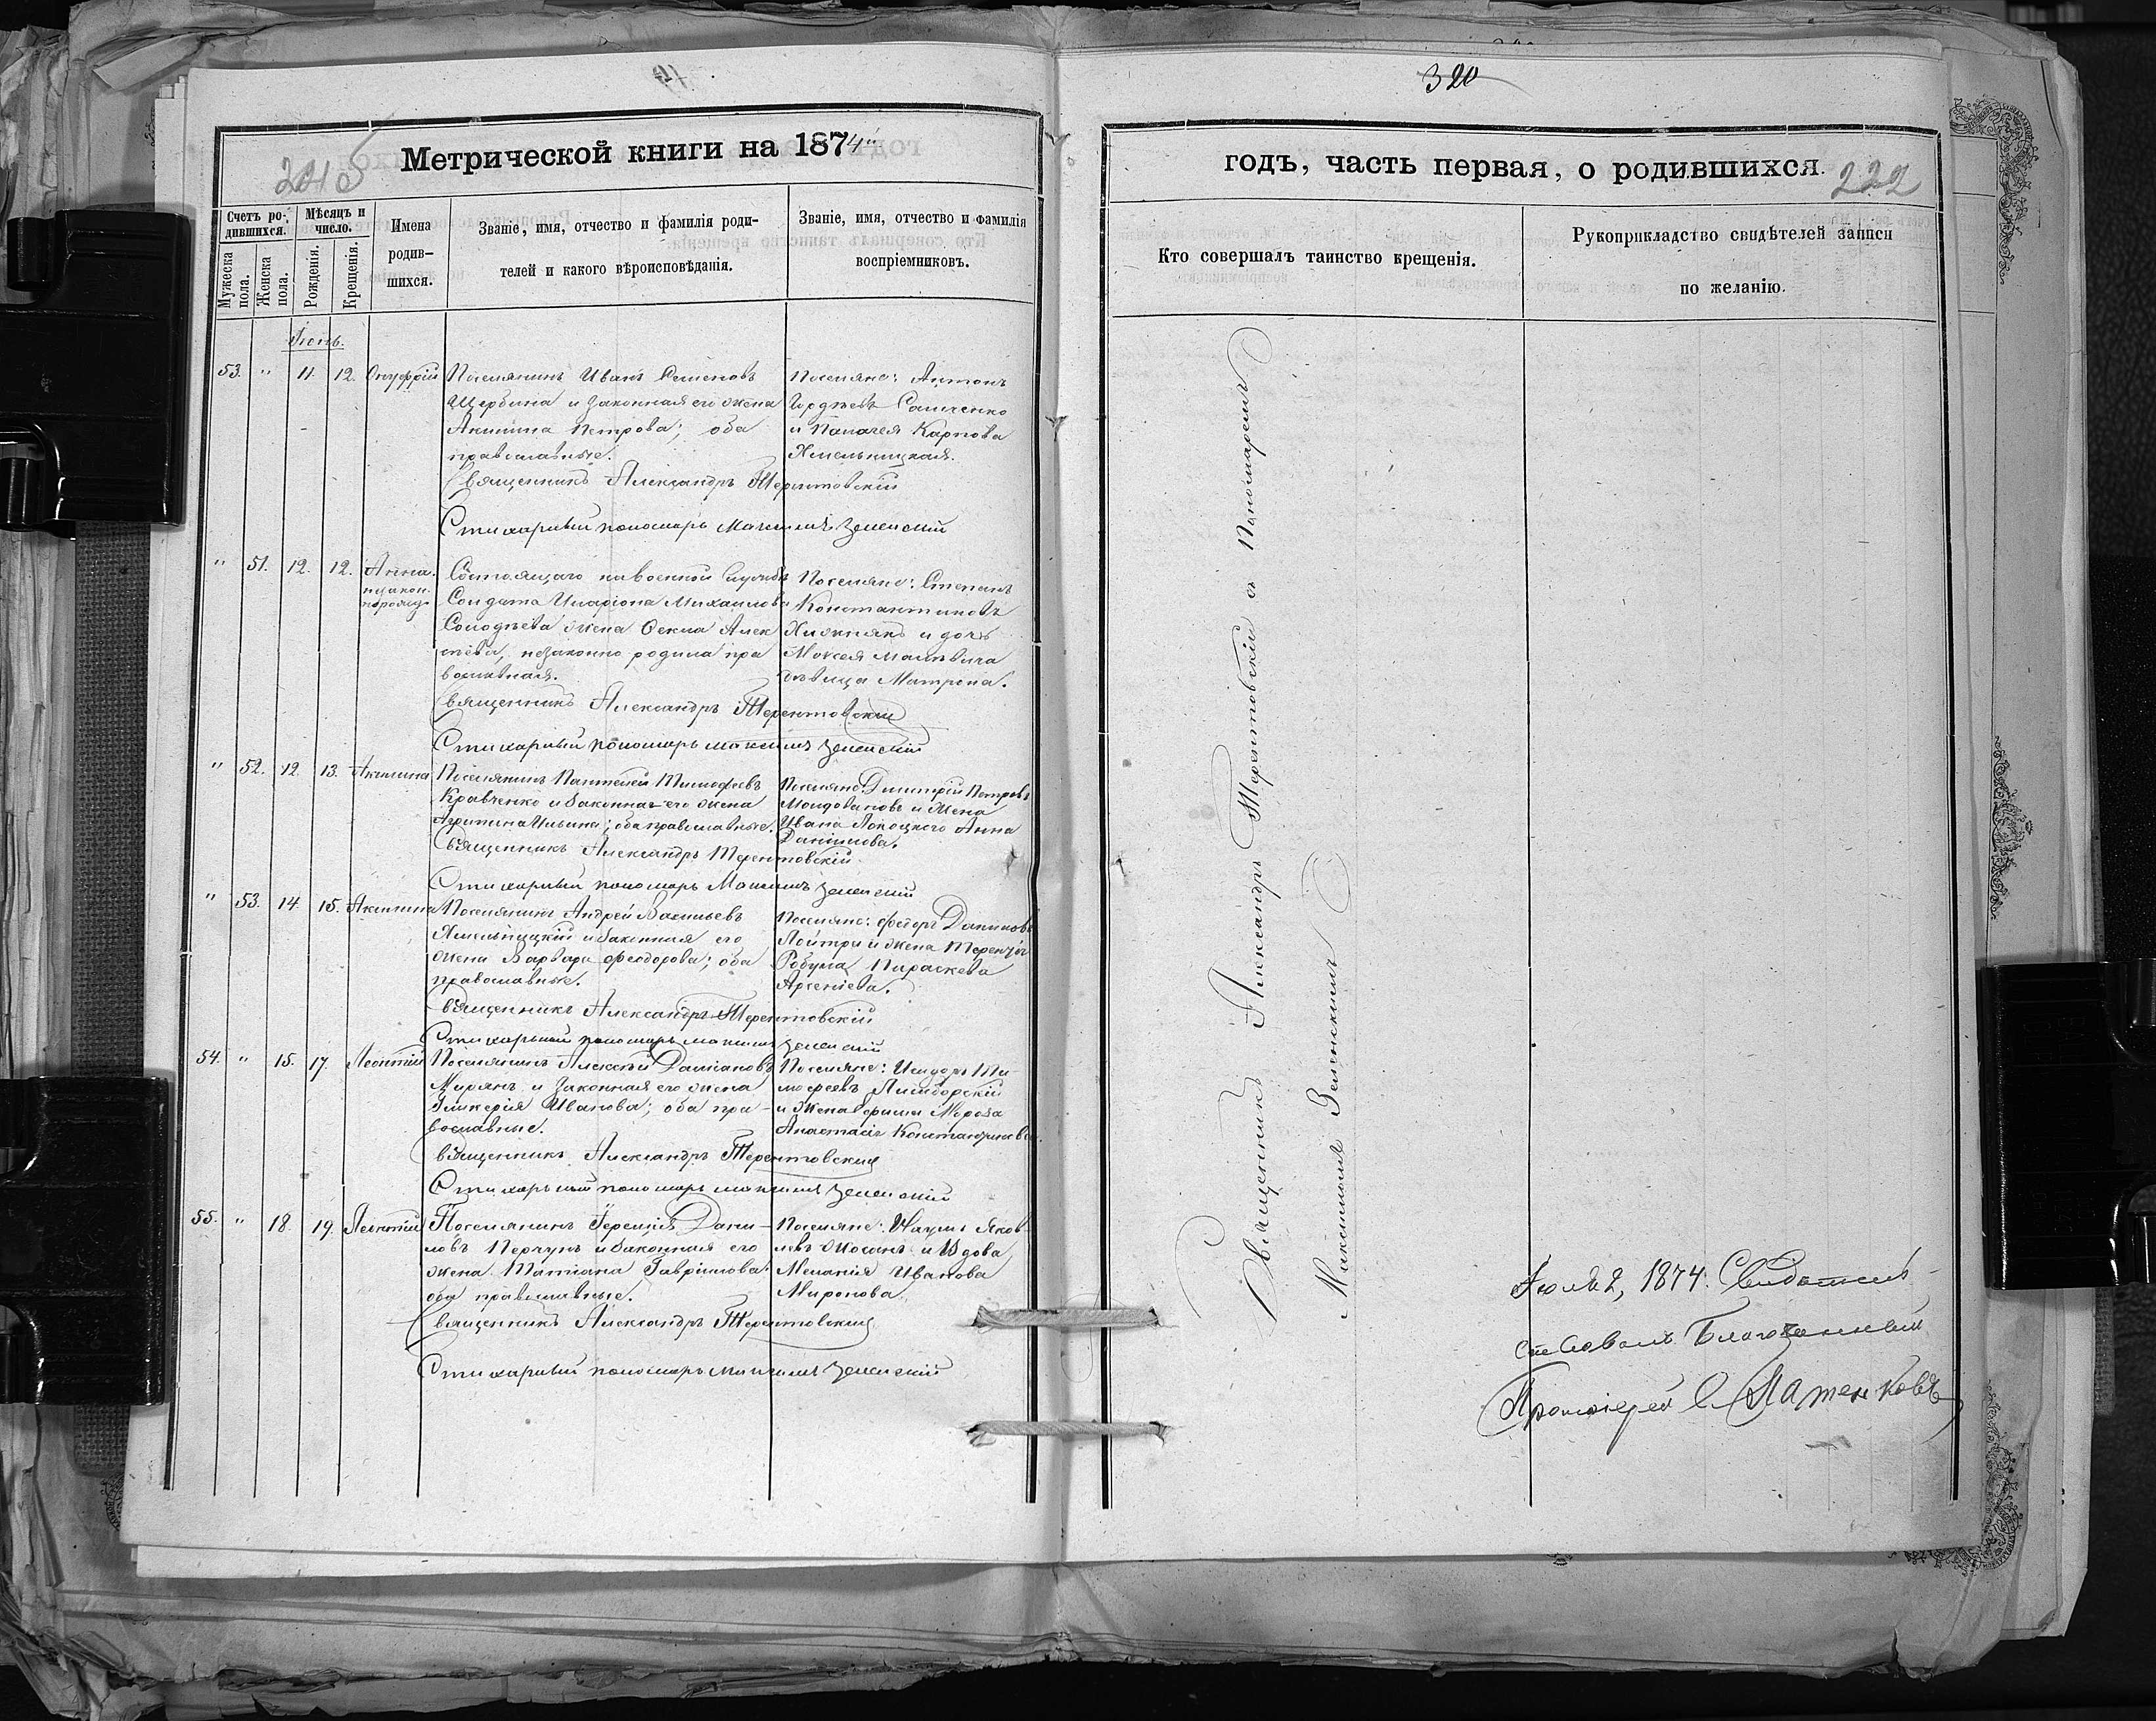 320
Метрической книги на 1874
годъ, часть первая, о родившихся.
222
Счетъ ро-
дившихся.
Мужеска
пола.
Женска
пола.
Мѣсяцъ и
число.
Рожденія.
Крещенія.
Имена
родив-
шихся.
Званіе, имя, отчество и фамилія роди-
телей и какого вѣроисповѣданія.
Званіе, имя, отчество и фамилія
воспріемниковъ.
Кто совершалъ таинство крещенія.
Рукоприкладство свидѣтелей записи
по желанію.
Іюнь.
53. " 11. 12. Онуфрій
Поселянинъ Иванъ Семеновъ
Щербина и законная его жена
Акилина Петрова; оба
православные.
Поселяне: Антонъ
Гордѣевъ
и Пелагея Карпова
Хмельницкая.
Священникъ Александръ Терентовскій
Стихарный пономарь Максимъ Зеленскій
" 51. 12. 12. Анна
незакон.
норожд.
Состоящаго на военной службѣ
Солдата Иларіона Михаилова
Солодѣева жена Ѳекла Алек
сѣева, незаконно родила пра
вославная.
Поселяне: Степанъ
Константиновъ
Хижнякъ и дочь
Моисея
дѣвица Матрона.
Священникъ Александръ Терентовскій
Стихарный пономарь Максимъ Зеленскій
" 52. 12. 13. Акилина
Поселянинъ Пантелей Тимофѣевъ
Кравченко и законная его жена
Агрипина Ильина; оба православные.
Поселяне Димитрій Петровъ
Молдовановъ и жена
Ивана Анна
Даніилова.
Священникъ Александръ Терентовскій
Стихарный пономарь Максимъ Зеленскій
" 53. 14. 15. Акилина
Поселянинъ Андрей Васильевъ
Хмельницкій и законная его
жена Варвара Ѳеодорова; оба
православные.
Поселяне: Ѳеодоръ Даниловъ
и жена Терентія
Параскева
Арсеніева.
Священникъ Александръ Терентовскій
Стихарный пономарь Максимъ Зеленскій
54. " 15. 17. Леонтій
Поселянинъ Алексѣй Даміановъ
и законная его жена
Гликерія Иванова; оба пра-
вославные.
Поселяне: Исидоръ Ти
моѳеевъ
и жена Мороза
Анастасія Константинова.
Священникъ Александръ Терентовскій
Стихарный пономарь Максимъ Зеленскій
55. " 18. 19. Леонтій
Поселянинъ Іеремія Дани-
ловъ Перчунъ и законная его
жена Татіана Гавріилова
оба православные.
Поселяне: Наумъ Яков
левъ и вдова
Меланія Иванова
Миронова.
Священникъ Александръ Терентовскій
Стихарный пономарь Максимъ Зеленскій
Священникъ Александръ Терентовскій съ Пономаремъ
Максимомъ Зеленскимъ
Іюля 2, 1874. Свидѣтель-
ствовалъ Благочинный
Протоіерей